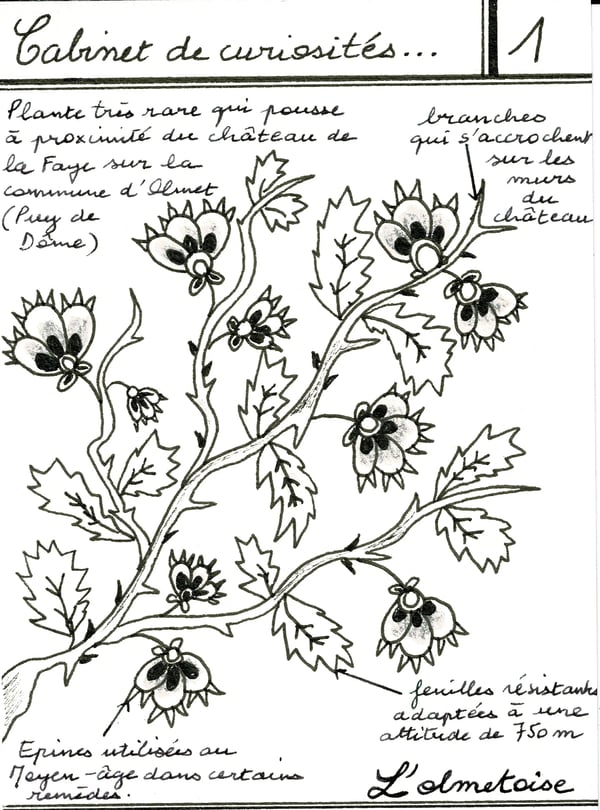 Cabinet de curiosités...
1
Plante très rare qui pousse
à proximité du château de
la Faye sur la
commune d'Olmet
(Puy de
Dôme)
branches
qui s'accrochent
sur les
murs
du
château
feuilles résistantes
adaptées à une
attitude de 750 m
Epines utilisées au
Moyen-âge dans certains
remèdes.
L'olmetoise